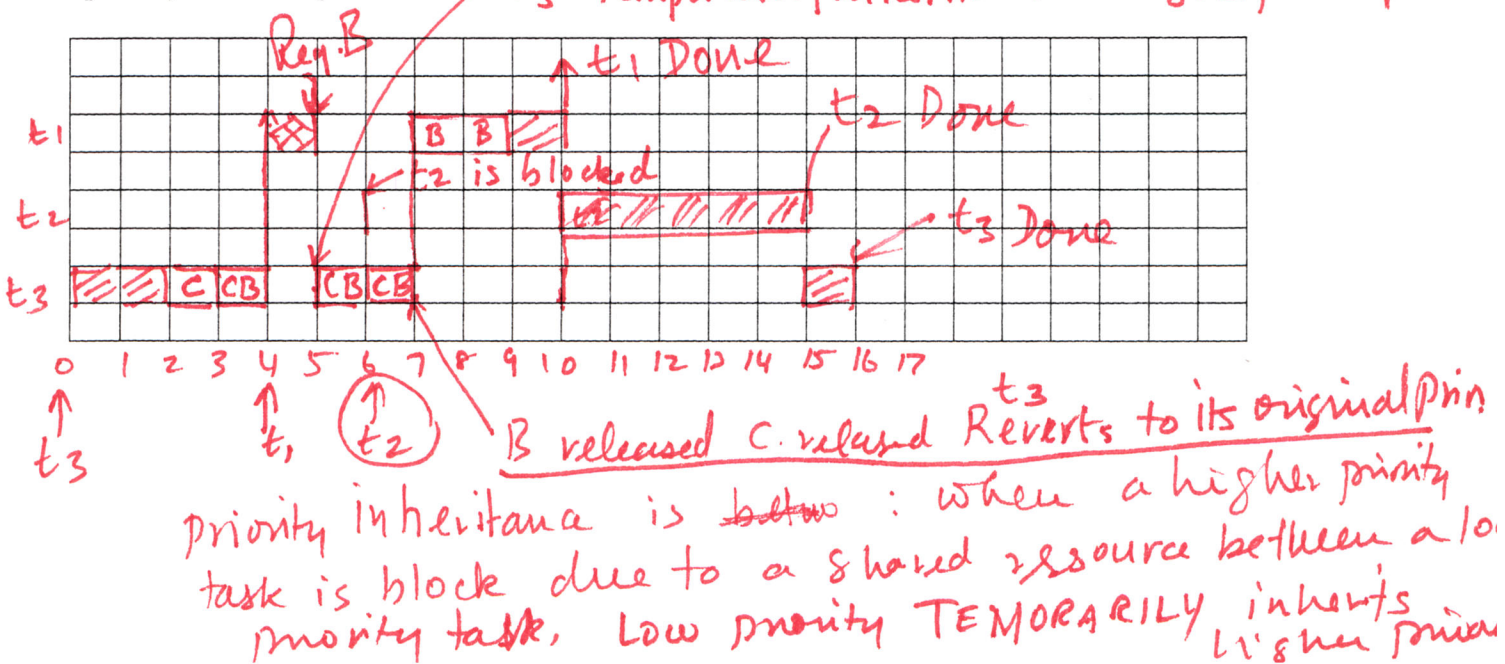 Req. B
t1 Done
t1
B B
t2 Done
t2 is blocked
t2
t3 Done
t3 C CB CB CB
0 1 2 3 4 5 6 7 8 9 10 11 12 13 14 15 16 17
t3 t1 t2
t3
B released C. relased Reverts to its original Prin
Priority inheritance is : when a higher priority
task is block due to a shared resource between a lo
priority task. Low priority TEMORARILY inherts
higher prior